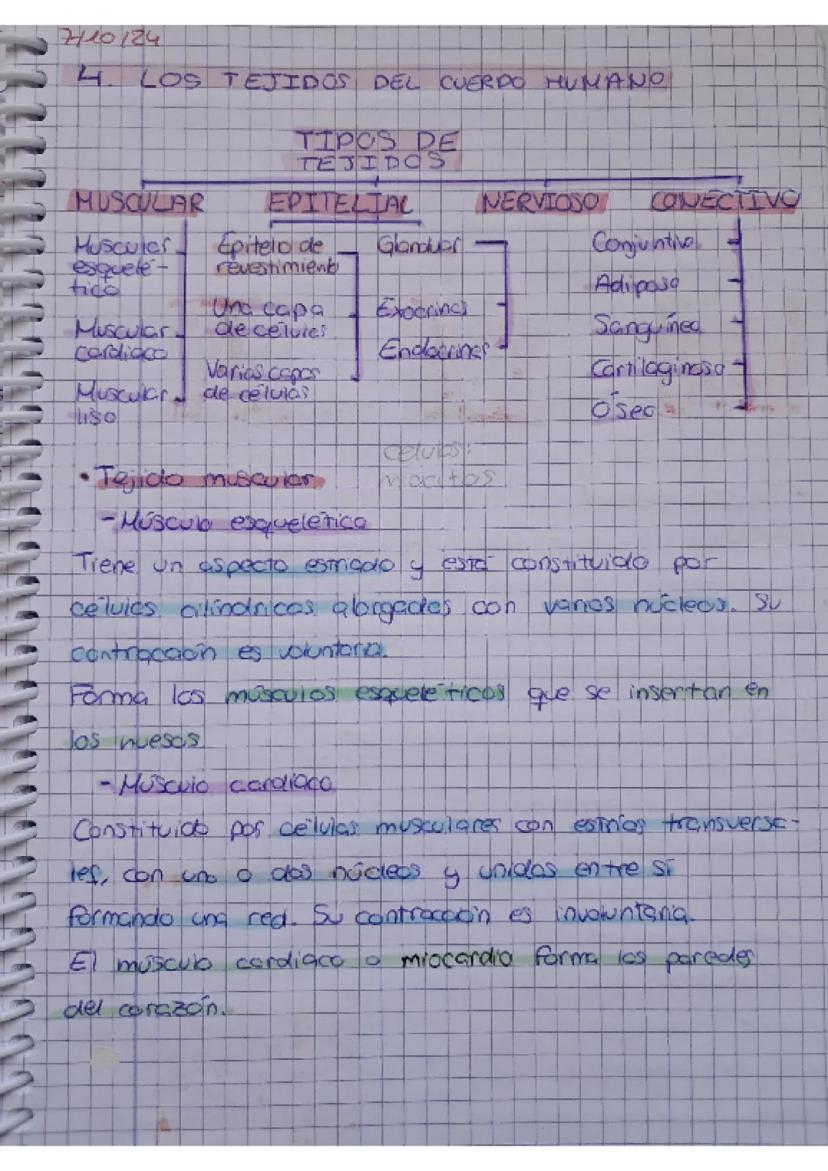 7/10/24
4. LOS TEJIDOS DEL CUERPO HUMANO
TIPOS DE
TEJIDOS
MUSCULAR EPITELIAL NERVIOSO CONECTIVO
Muscular
esquelé-
tico
Muscular
cardiaco
Muscular
liso
Epitelo de
revestimiento
Una capa
de células
Varias capas
de células
Glandular
Exocrinas
Endocrinas
Conjuntivo
Adiposo
Sanguíneo
Cartilaginoso
Óseo
células:
miocitos
• Tejido muscular
- Músculo esquelético
Tiene un aspecto estriado y está constituido por
células cilíndricas alargadas con varios núcleos. Su
contracción es voluntaria.
Forma los músculos esqueléticos que se insertan en
los huesos
- Músculo cardiaco
Constituido por células musculares con estrías transversa-
les, con uno o dos núcleos y unidas entre sí
formando una red. Su contracción es involuntaria.
El músculo cardiaco o miocardio forma las paredes
del corazón.